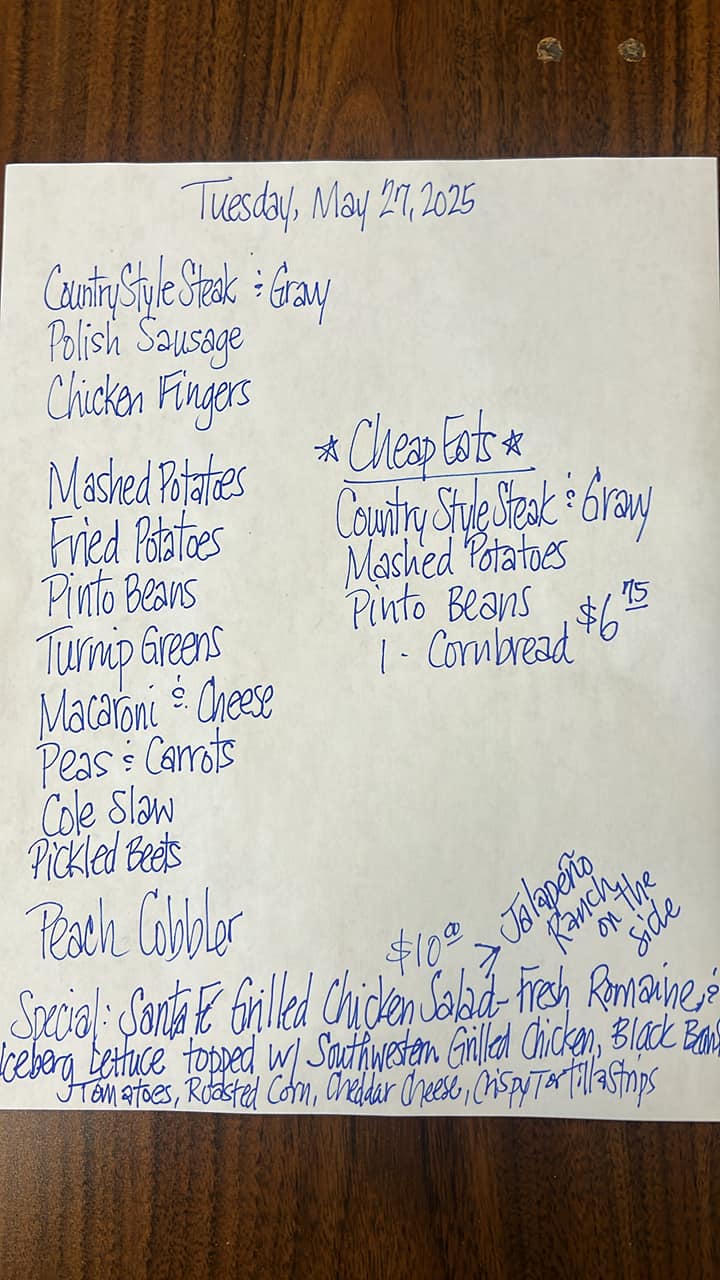 Tuesday, May 27, 2025
Country Style Steak & Gravy
Polish Sausage
Chicken Fingers
Mashed Potatoes
Fried Potatoes
Pinto Beans
Turnip Greens
Macaroni & Cheese
Peas & Carrots
Cole Slaw
Pickled Beets
Peach Cobbler
☆ Cheap Eats ☆
Country Style Steak & Gravy
Mashed Potatoes
Pinto Beans
$6.75
1 - Cornbread
$10.00 → Jalapeño
Ranch
on the
side
Special: Santa Fe Grilled Chicken Salad - Fresh Romaine, &
Iceberg Lettuce topped w/ Southwestern Grilled Chicken, Black Bean
Tomatoes, Roasted Corn, Cheddar Cheese, Crispy Tortilla Strips